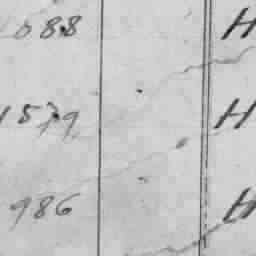 088 H
1579 H
986 H